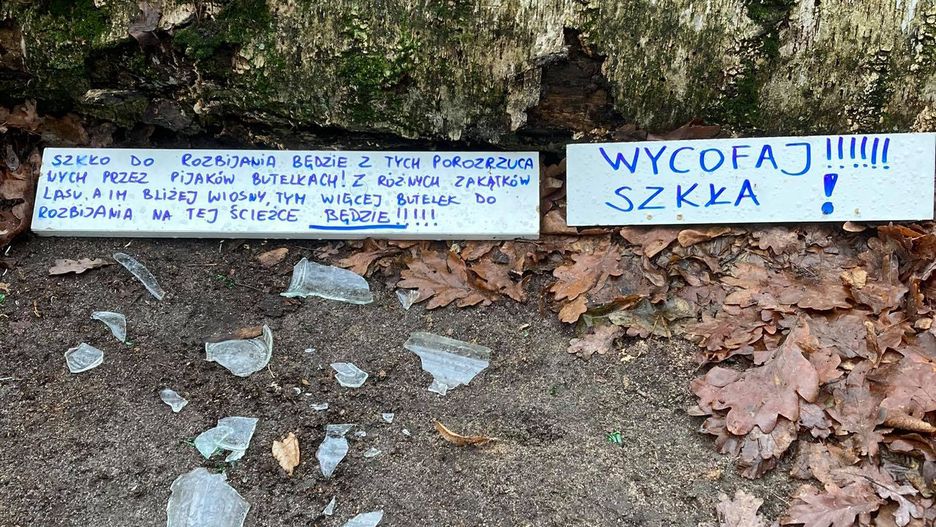 SZKŁO DO ROZBIJANIA BĘDZIE Z TYCH POROZRZUCA
NYCH PRZEZ PIJAKÓW BUTELKACH! Z RÓŻNYCH ZAKĄTKÓW
LASU, A IM BLIŻEJ WIOSNY, TYM WIĘCEJ BUTELEK DO
ROZBIJANIA NA TEJ ŚCIEŻCE BĘDZIE!!!!!
WYCOFAJ !!!!!!
SZKŁA !